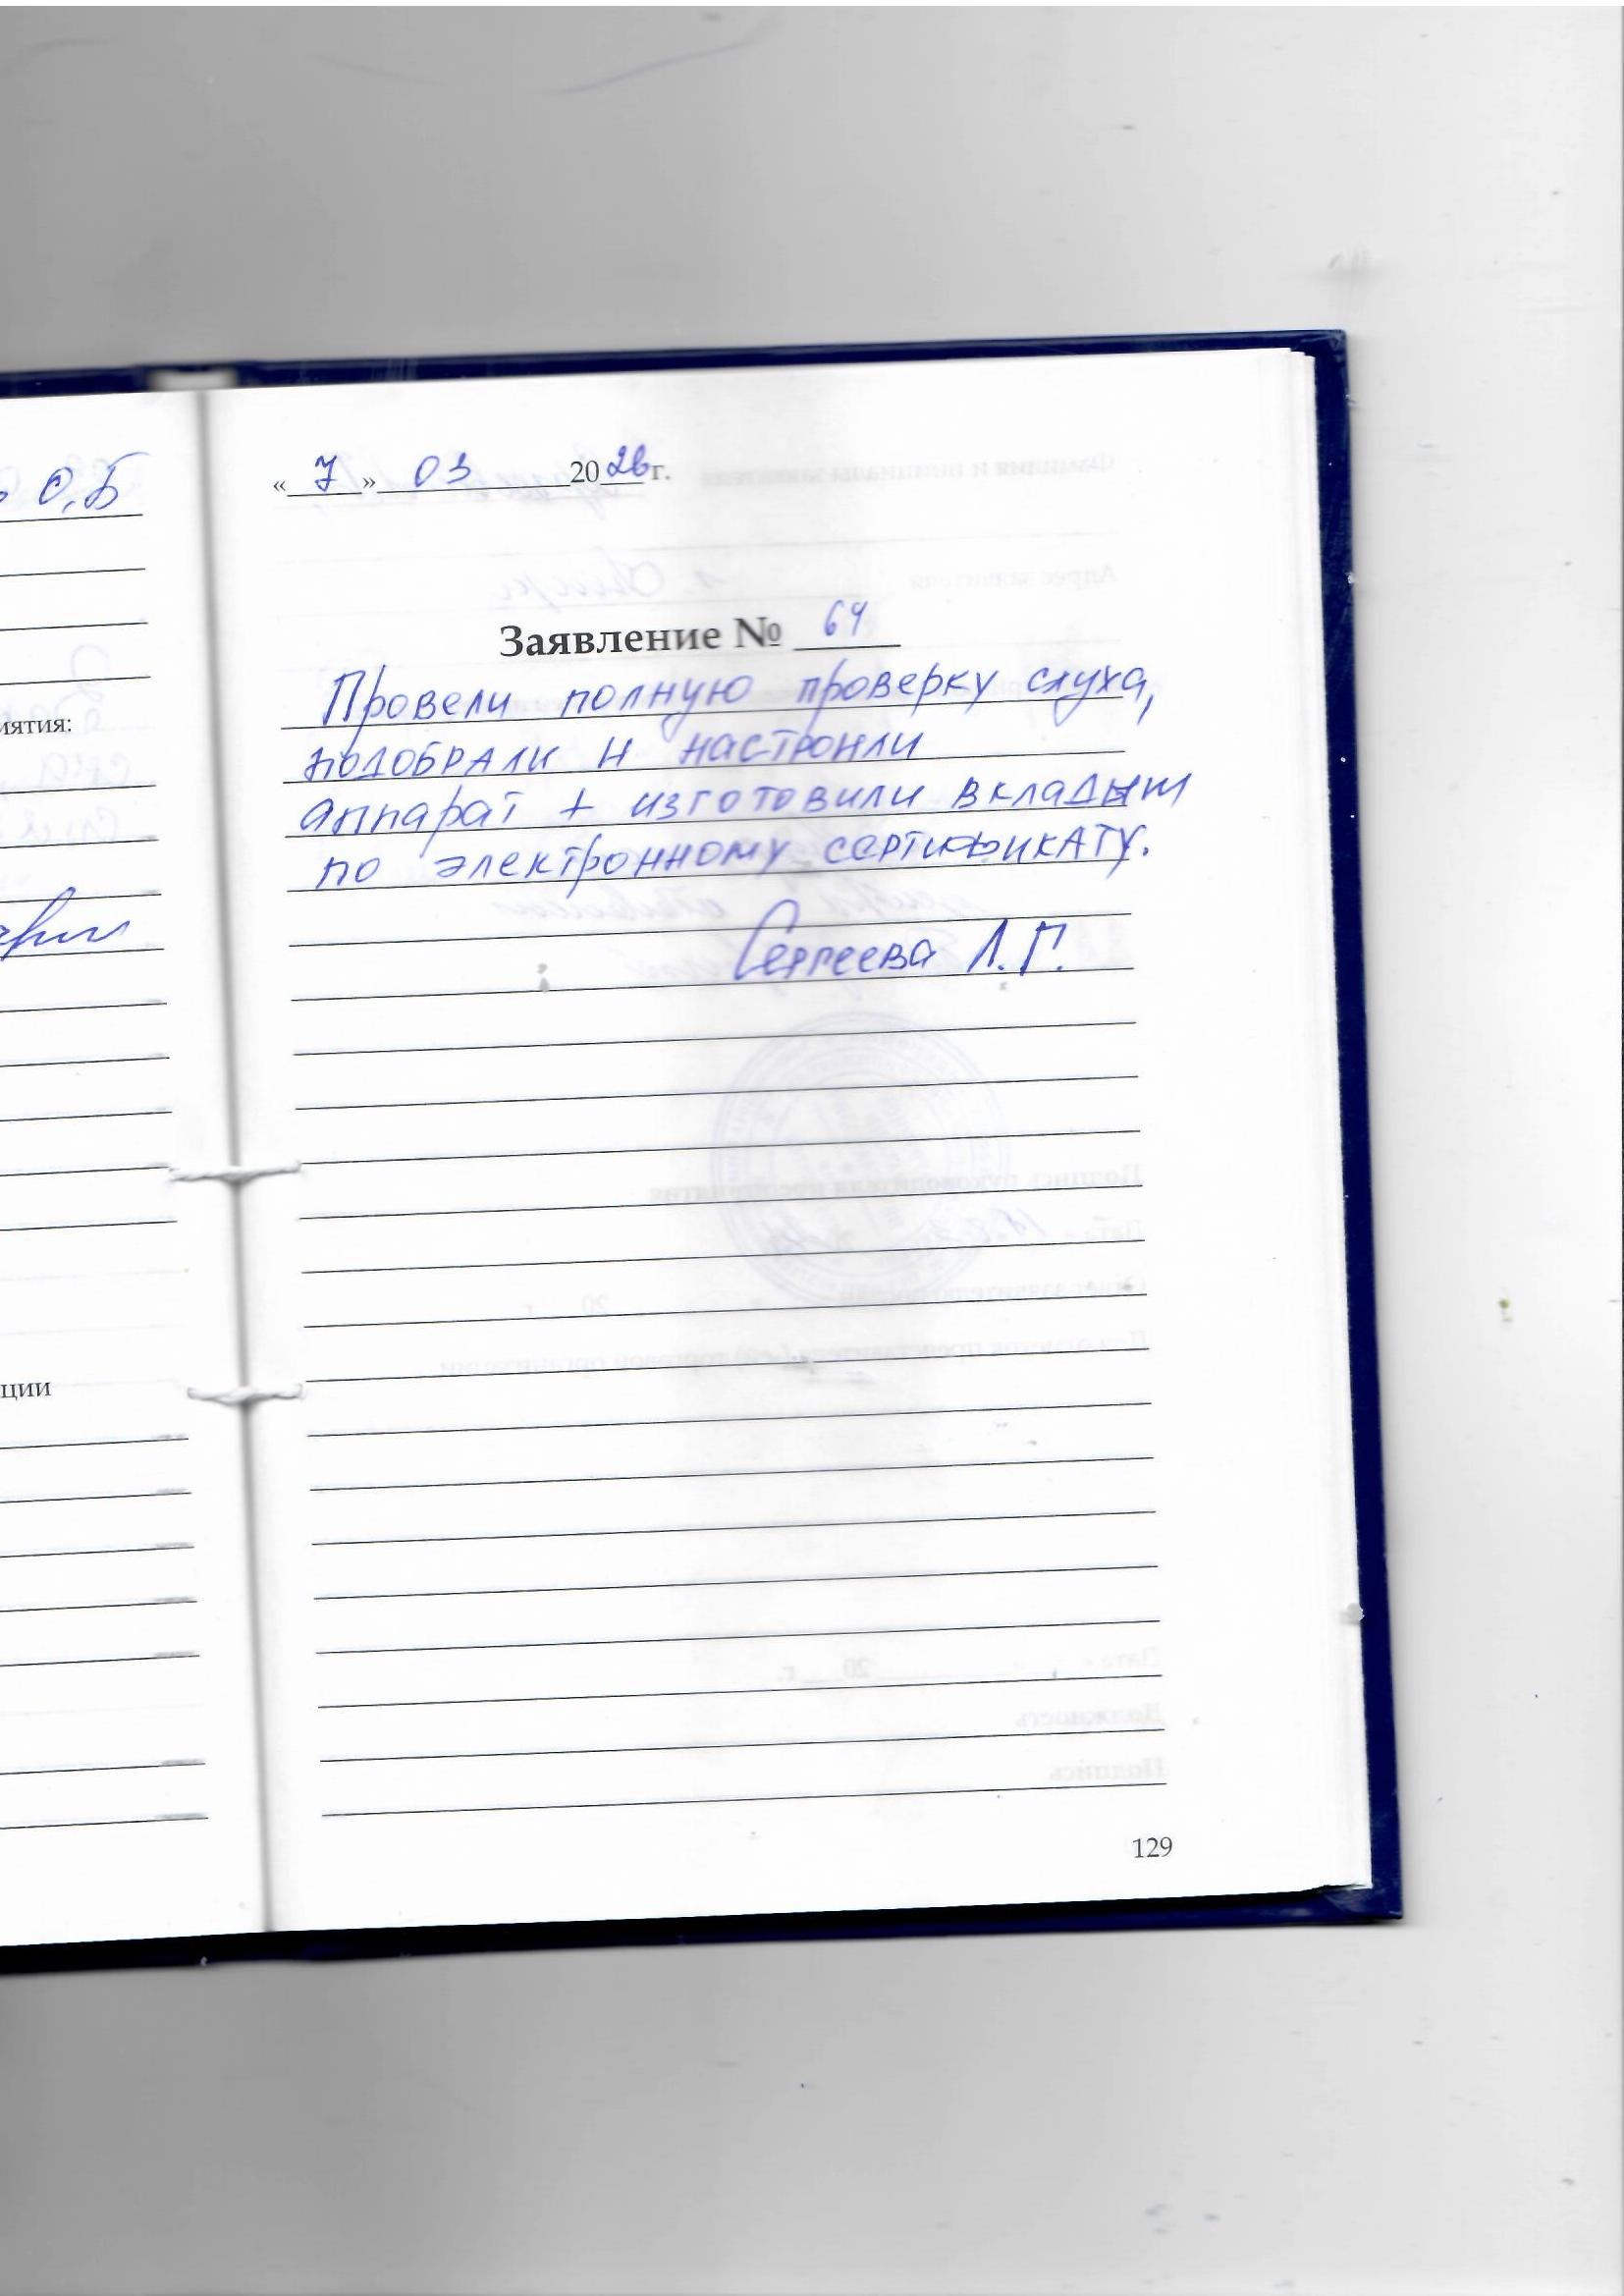 О.Б
иятия:
ции
« 7 » 03 2026 г.
Заявление № 64
Провели полную проверку слуха,
подобрали и настроили
аппарат + изготовили вкладыш
по электронному сертификату.
Сергеева Л.Г.
129